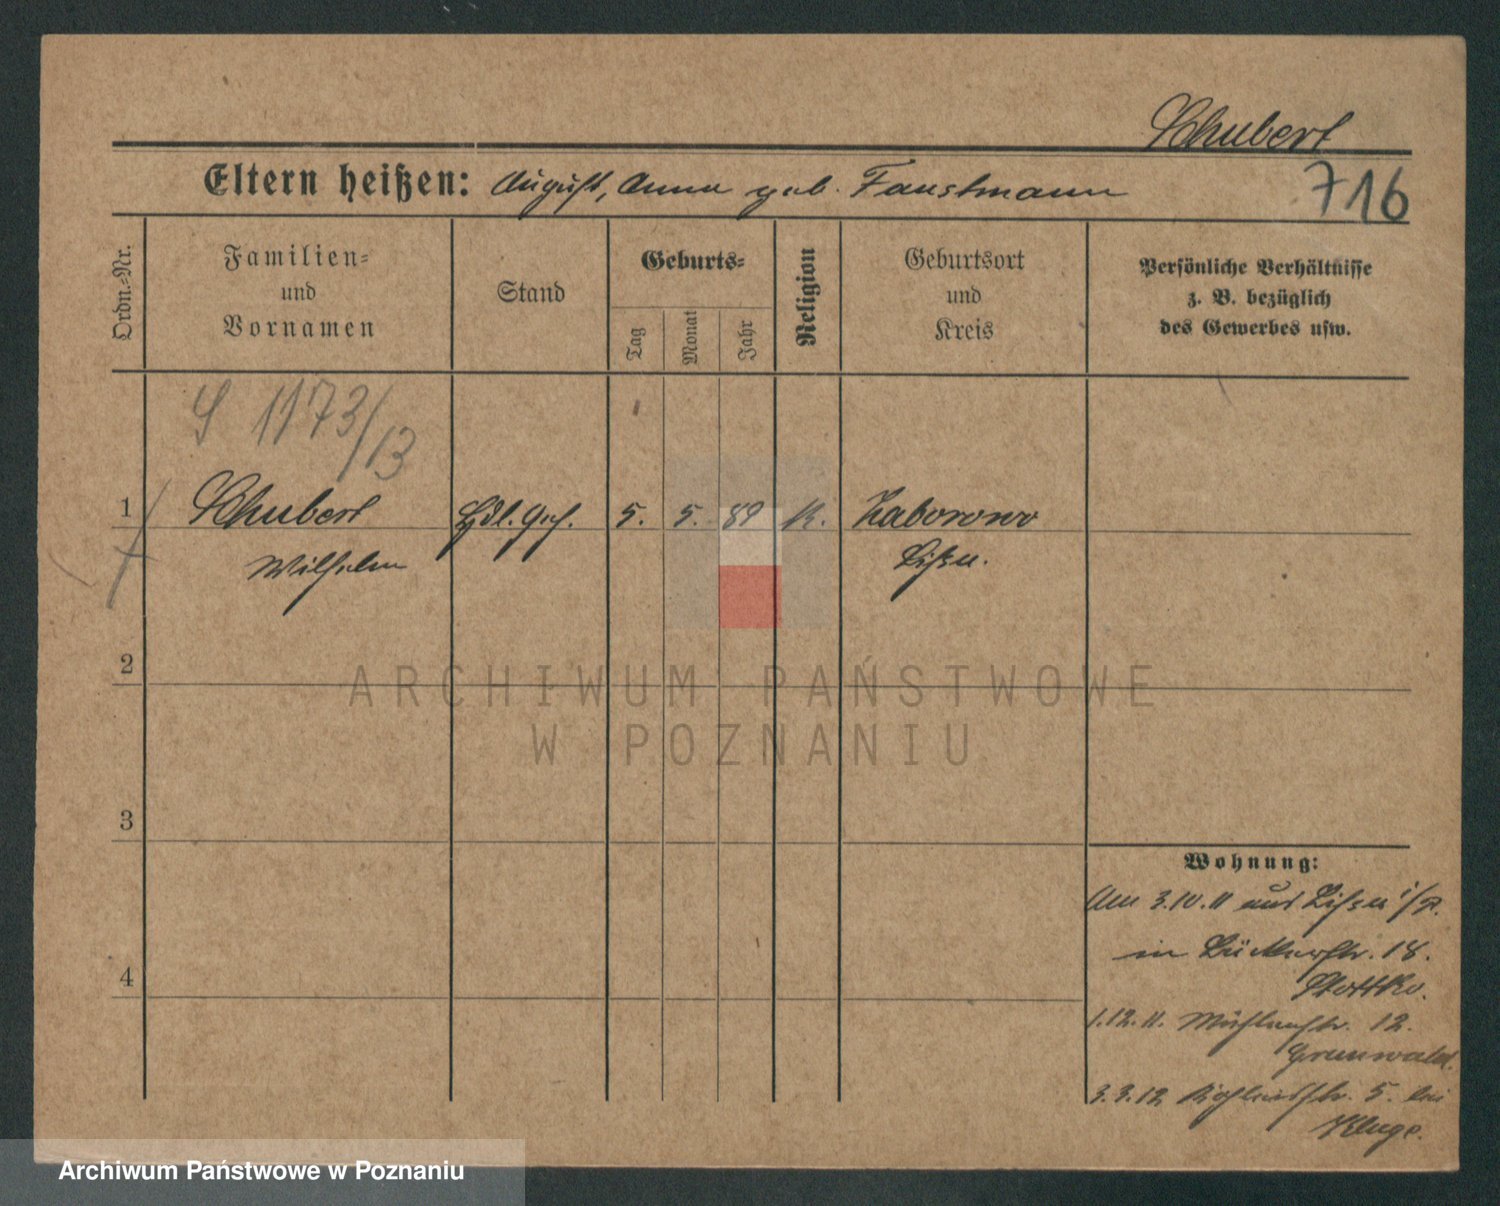 Schubert
Eltern heißen: August, Anna geb. Faustmann
716
Ordn.-Nr.
Familien- und Vornamen
Stand
Geburts-
Tag
Monat
Jahr
Religion
Geburtsort und Kreis
Persönliche Verhältnisse
z. B. bezüglich
des Gewerbes usw.
S 1173/13
1 Schubert Hdl. Geh. 5. 5. 89 K. Zaborowo
Wilhelm Lissa.
2
ARCHIWUM PAŃSTWOWE
W POZNANIU
3
Wohnung:
Am 3.10.11 aus Lissa i/P.
4
in Bäckerstr. 18.
1.12.11. Mühlenstr. 12.
Grunwald.
3.3.12 5. bei
Kluge.
Archiwum Państwowe w Poznaniu